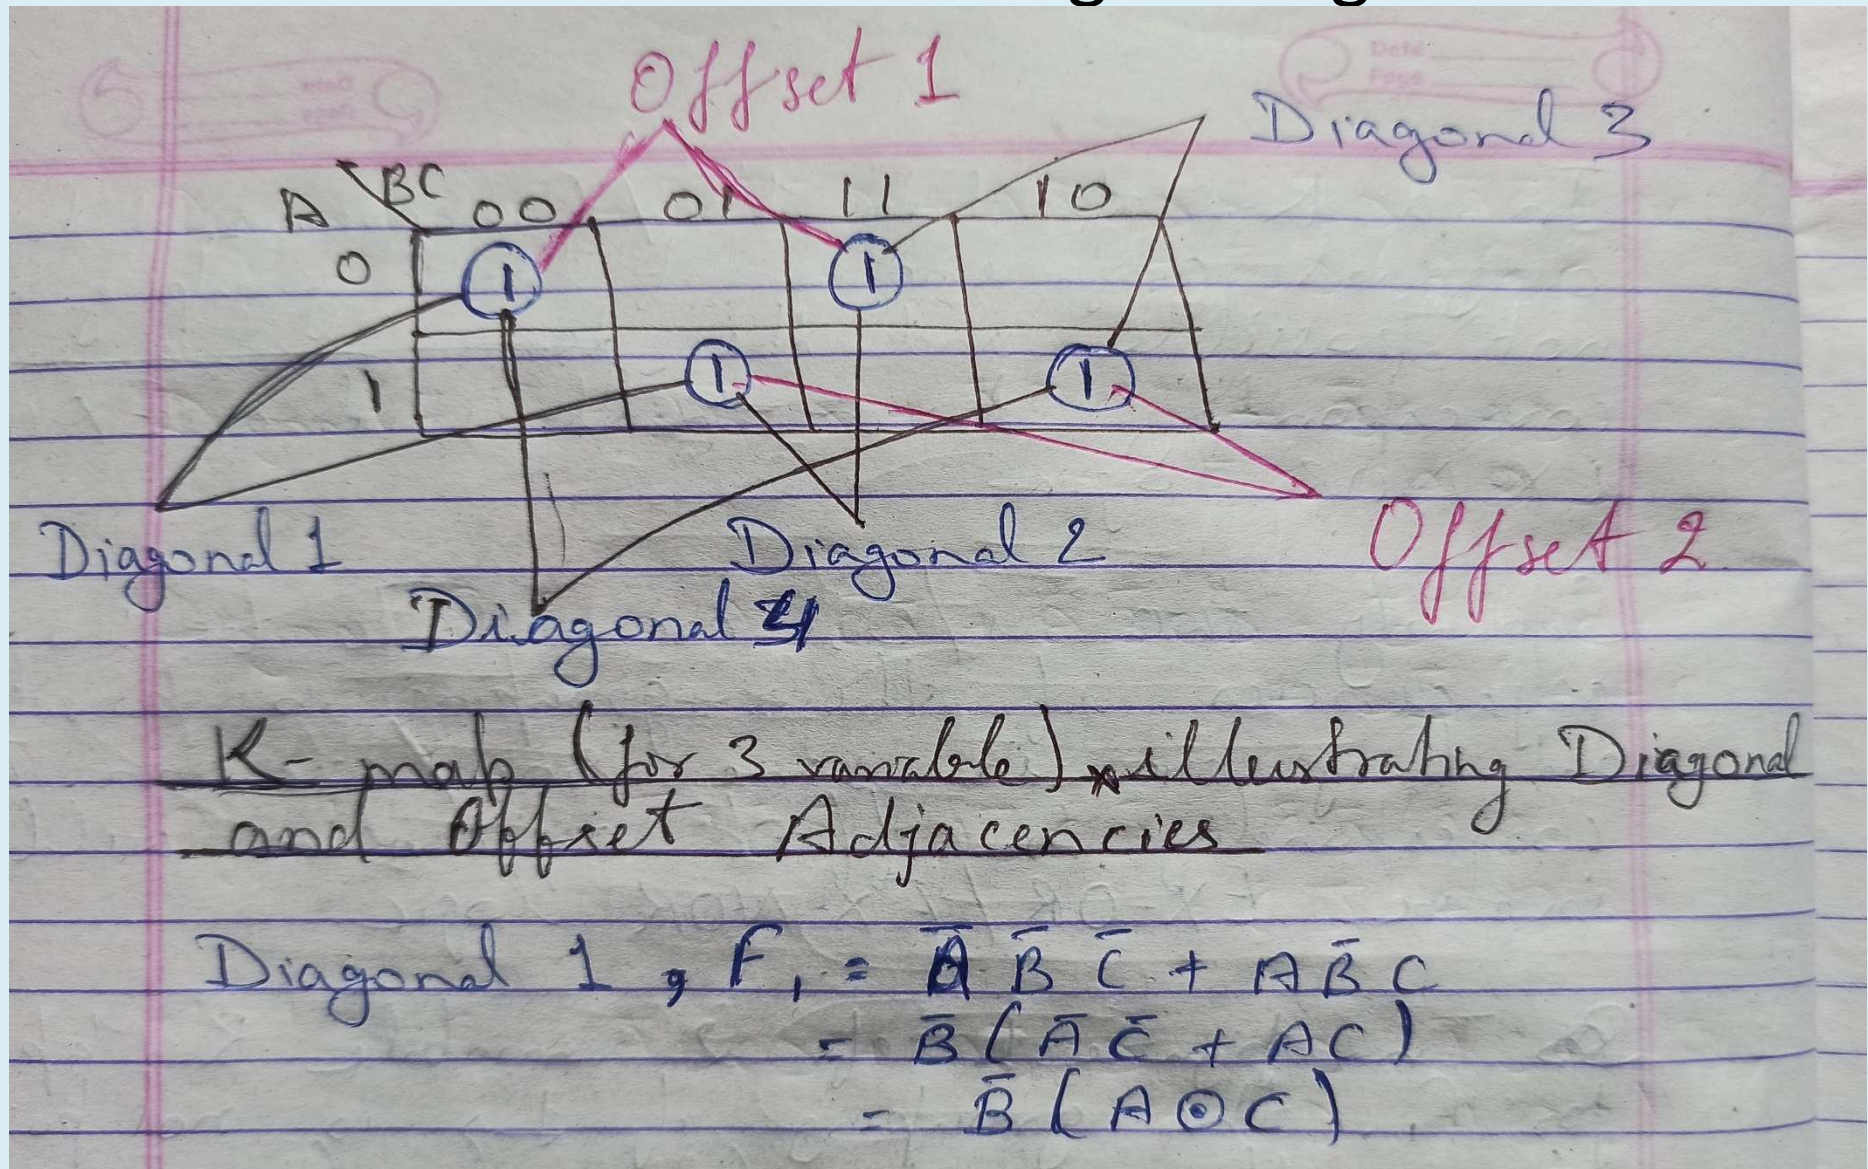 Offset 1
Date
Page
Diagonal 3
A BC 00 01 11 10
0 1 1
1 1 1
Diagonal 1
Diagonal 2
Offset 2
Diagonal 4
K-map (for 3 variable) illustrating Diagonal
and Offset Adjacencies
Diagonal 1, F₁ = A̅ B̅ C̅ + A B̅ C
= B̅ (A̅ C̅ + A C)
= B̅ (A ⊙ C)